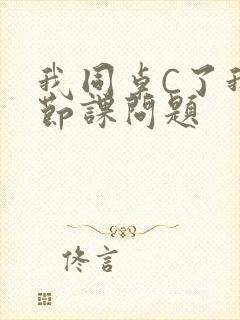 我同桌C了我
节课问题
佟言